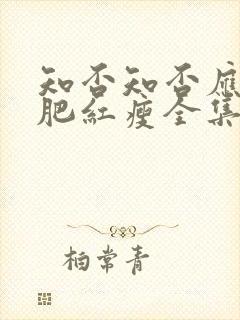 知否知否應
肥紅瘦全集
柏常青